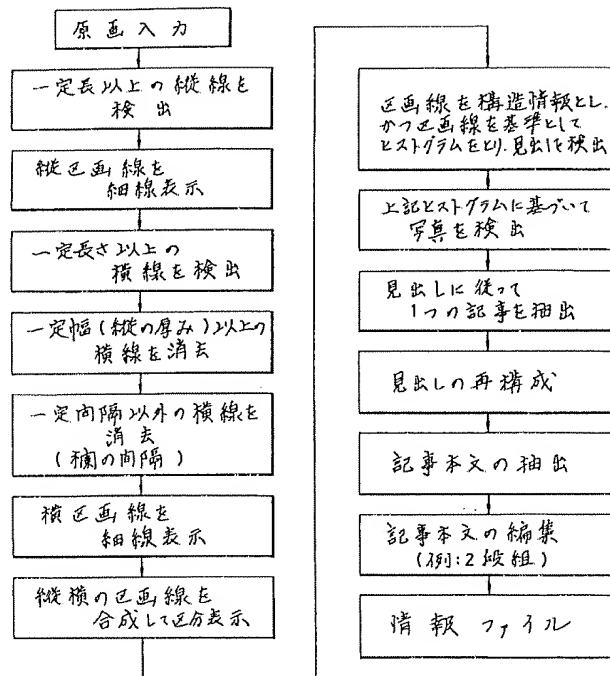 原画入力
一定長以上の縦線を
検出
縦区画線を
細線表示
一定長さ以上の
横線を検出
一定幅(縦の厚み)以上の
横線を消去
一定間隔以外の横線を
消去
(欄の間隔)
横区画線を
細線表示
縦横の区画線を
合成して区分表示
区画線を構造情報とし、
かつ区画線を基準として
ヒストグラムをとり、見出しを検出
上記ヒストグラムに基づいて
写真を検出
見出しに従って
1つの記事を抽出
見出しの再構成
記事本文の抽出
記事本文の編集
(例:2段組)
情報ファイル